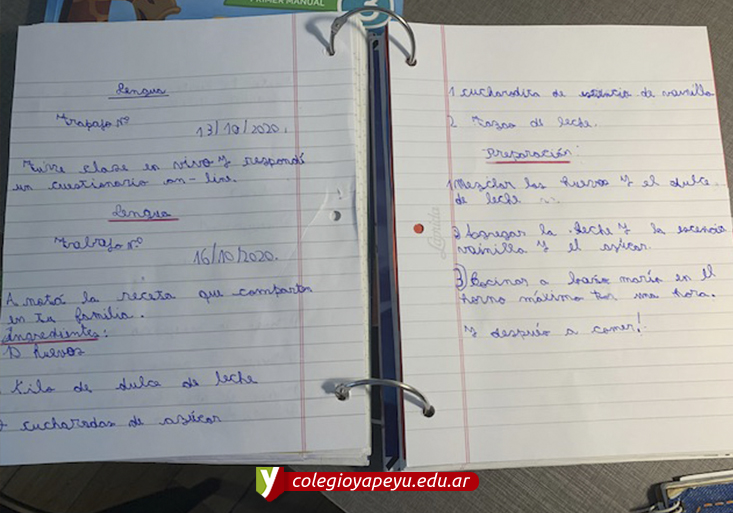 PRIMER MANUAL
3
Lengua
Trapajo Nº
13/10/2020.
Tuve clase en vivo y respondí
un cuestionario on-line.
Lengua
Trabajo Nº
16/10/2020.
Anotá la receta que comparten
en tu familia.
Ingredientes:
10 huevos
Kilo de dulce de leche
cucharadas de azúcar
1 cucharadita de esencia de vainilla
2 Tazas de leche.
Preparación:
1) Mezclar los huevos y el dulce
de leche
2) Agregar la leche y la esencia
vainilla y el azúcar.
3) Cocinar a baño maría en el
horno máximo por una hora.
Y después a comer!
Lapida
y colegioyapeyu.edu.ar